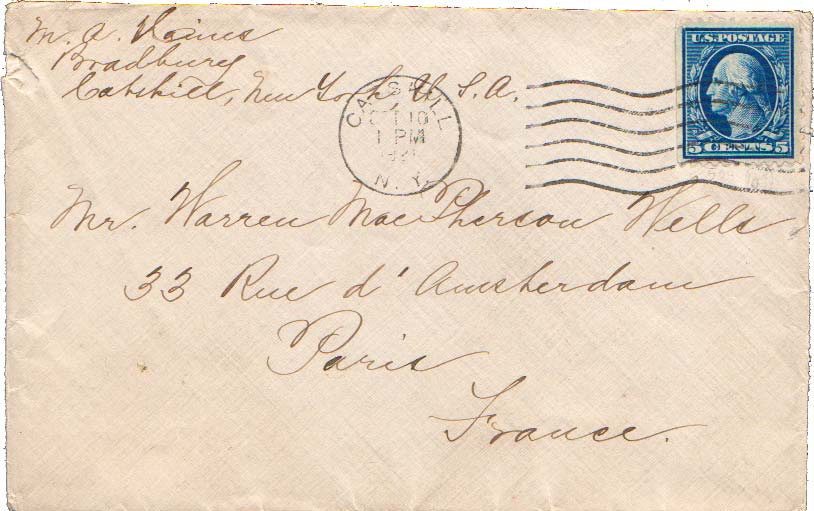 M. A. Haines
Bradbury
Catskill, New York U. S. A.
CATSKILL
OCT 10
1 PM
N. Y.
U.S. POSTAGE
5 CENTS 5
Mr. Warren MacPherson Wells
33 Rue d'Amsterdam
Paris
France.